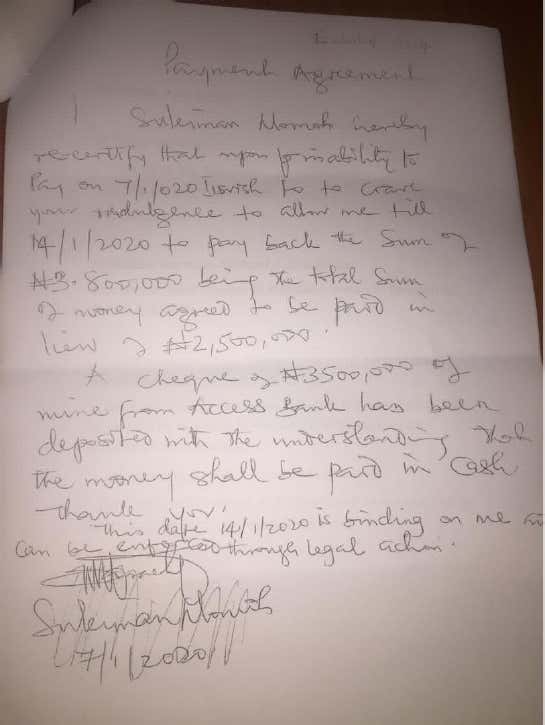 Payment Agreement
I Suleiman Momoh hereby
recertify that upon my inability to
Pay on 7/1/020 I wish to to crave
your indulgence to allow me till
14/1/2020 to pay back the Sum of
₦3.800,000 being the total Sum
of money agreed to be paid in
lieu of ₦2,500,000.
A cheque of ₦3500,000 of
mine from Access Bank has been
deposited with the understanding that
the money shall be paid in Cash
Thank you.
This date 14/1/2020 is binding on me
can be through legal action.
Suleiman Momoh
7/1/2020